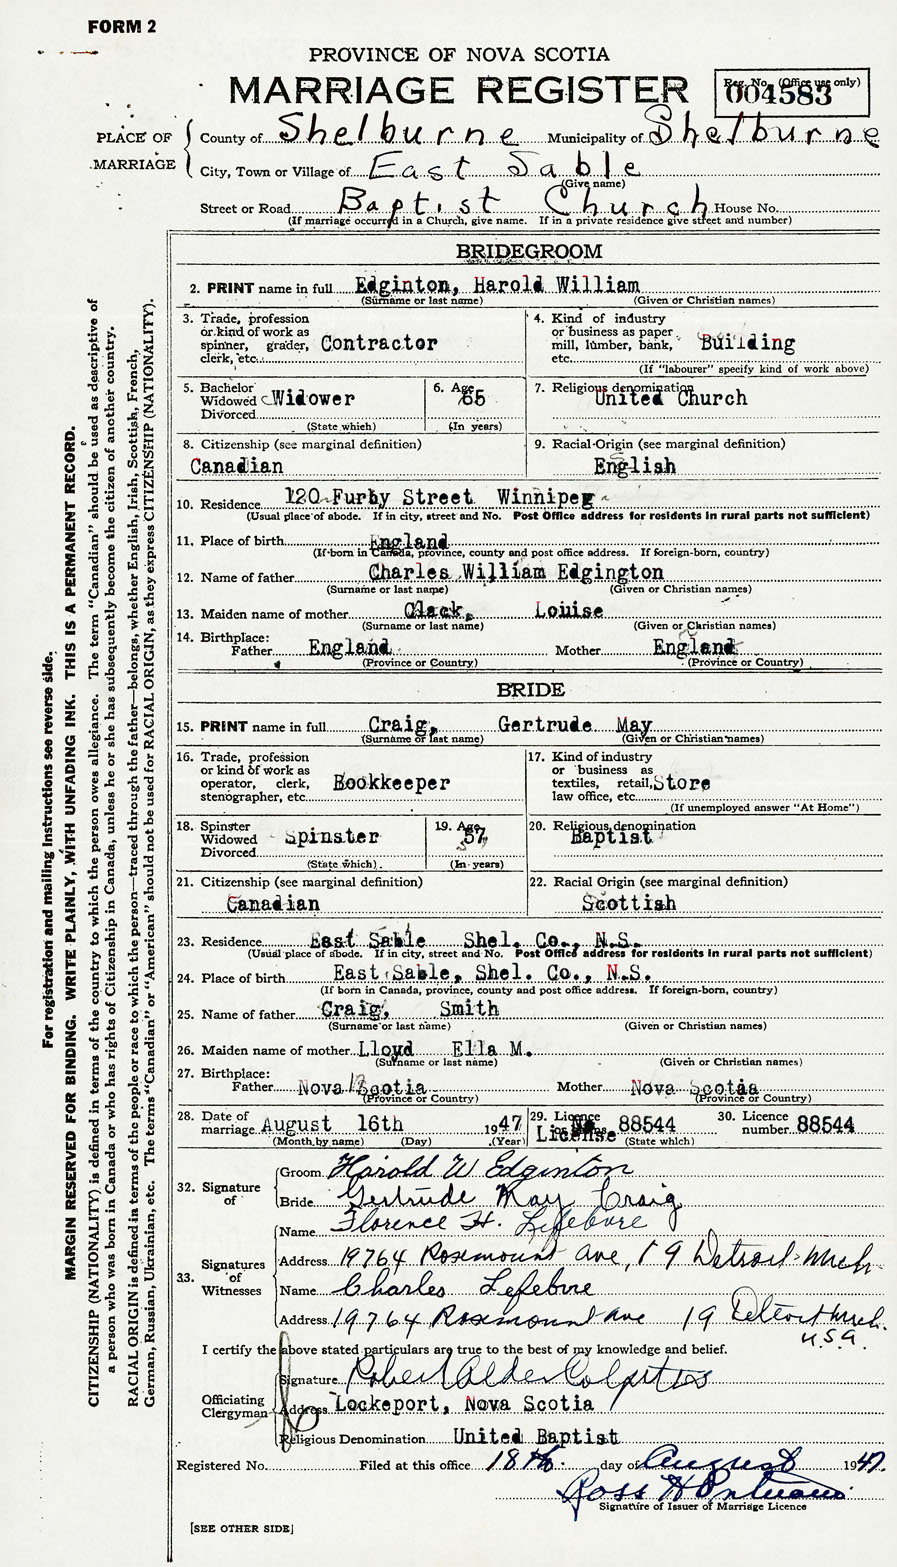 FORM 2
PROVINCE OF NOVA SCOTIA
MARRIAGE REGISTER
Reg. No. (Office use only)
004583
PLACE OF MARRIAGE
County of Shelburne Municipality of Shelburne
City, Town or Village of East Sable
(Give name)
Street or Road Baptist Church House No.
(If marriage occurred in a Church, give name. If in a private residence give street and number)
BRIDEGROOM
2. PRINT name in full Edginton, Harold William
(Surname or last name) (Given or Christian names)
3. Trade, profession
or kind of work as
spinner, grader,
clerk, etc. Contractor
4. Kind of industry
or business as paper
mill, lumber, bank,
etc. Building
(If "labourer" specify kind of work above)
5. Bachelor
Widowed
Divorced
Widower
(State which)
6. Age
65
(In years)
7. Religious denomination
United Church
8. Citizenship (see marginal definition)
Canadian
9. Racial Origin (see marginal definition)
English
10. Residence 120 Furby Street Winnipeg
(Usual place of abode. If in city, street and No. Post Office address for residents in rural parts not sufficient)
11. Place of birth England
(If born in Canada, province, county and post office address. If foreign-born, country)
12. Name of father Charles William Edgington
(Surname or last name) (Given or Christian names)
13. Maiden name of mother Clack, Louise
(Surname or last name) (Given or Christian names)
14. Birthplace:
Father England Mother England
(Province or Country) (Province or Country)
BRIDE
15. PRINT name in full Craig, Gertrude May
(Surname or last name) (Given or Christian names)
16. Trade, profession
or kind of work as
operator, clerk,
stenographer, etc. Bookkeeper
17. Kind of industry
or business as
textiles, retail,
law office, etc. Store
(If unemployed answer "At Home")
18. Spinster
Widowed
Divorced
Spinster
(State which)
19. Age
57
(In years)
20. Religious denomination
Baptist
21. Citizenship (see marginal definition)
Canadian
22. Racial Origin (see marginal definition)
Scottish
23. Residence East Sable Shel. Co., N.S.
(Usual place of abode. If in city, street and No. Post Office address for residents in rural parts not sufficient)
24. Place of birth East Sable, Shel. Co., N.S.
(If born in Canada, province, county and post office address. If foreign-born, country)
25. Name of father Craig, Smith
(Surname or last name) (Given or Christian names)
26. Maiden name of mother Lloyd Ella M.
(Surname or last name) (Given or Christian names)
27. Birthplace:
Father Nova Scotia Mother Nova Scotia
(Province or Country) (Province or Country)
28. Date of
marriage August 16th 1947
(Month by name) (Day) (Year)
29. Licence
License 88544
(State which)
30. Licence
number 88544
32. Signature
of
Groom Harold W Edginton
Bride Gertrude May Craig
33. Signatures
of
Witnesses
Name Florence H. Lefebvre
Address 19764 Rosemount Ave, 19 Detroit Mich
Name Charles Lefebvre
Address 19764 Rosemount Ave 19 Detroit Mich.
U.S.A.
I certify the above stated particulars are true to the best of my knowledge and belief.
Officiating
Clergyman
Signature Robert Alder Colpitts
Address Lockeport, Nova Scotia
Religious Denomination United Baptist
Registered No. Filed at this office 18th day of August 1947.
Ross H
Signature of Issuer of Marriage Licence
[SEE OTHER SIDE]
For registration and mailing instructions see reverse side.
MARGIN RESERVED FOR BINDING. WRITE PLAINLY, WITH UNFADING INK. THIS IS A PERMANENT RECORD.
CITIZENSHIP (NATIONALITY) is defined in terms of the country to which the person owes allegiance. The term "Canadian" should be used as descriptive of
a person who was born in Canada or who has rights of Citizenship in Canada, unless he or she has subsequently become the citizen of another country.
RACIAL ORIGIN is defined in terms of the people or race to which the person—traced through the father—belongs, whether English, Irish, Scottish, French,
German, Russian, Ukrainian, etc. The terms "Canadian" or "American" should not be used for RACIAL ORIGIN, as they express CITIZENSHIP (NATIONALITY).